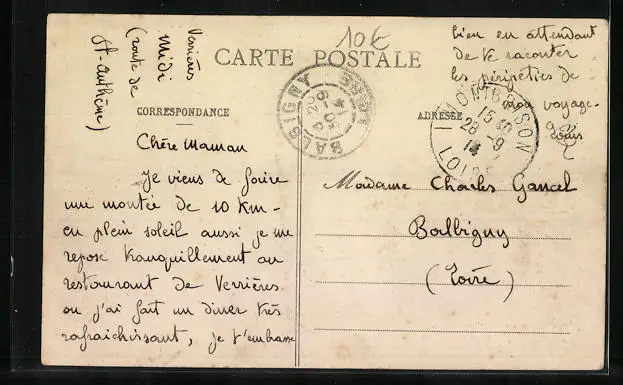 Verrières
Midi
(route de
St-Anthème)
10€
CARTE POSTALE
CORRESPONDANCE
ADRESSE
Chère Maman
Je viens de faire
une montée de 10 Km -
en plein soleil aussi je me
repose tranquillement au
restaurant de Verrières
ou j'ai fait un diner très
rafraichissant, je t'embrasse
bien en attendant
de te raconter
les péripéties de
mon voyage -
Louis
BALBIGNY
LOIRE
MONTBRISON
LOIRE
Madame Charles Gancel
Balbigny
(Loire)